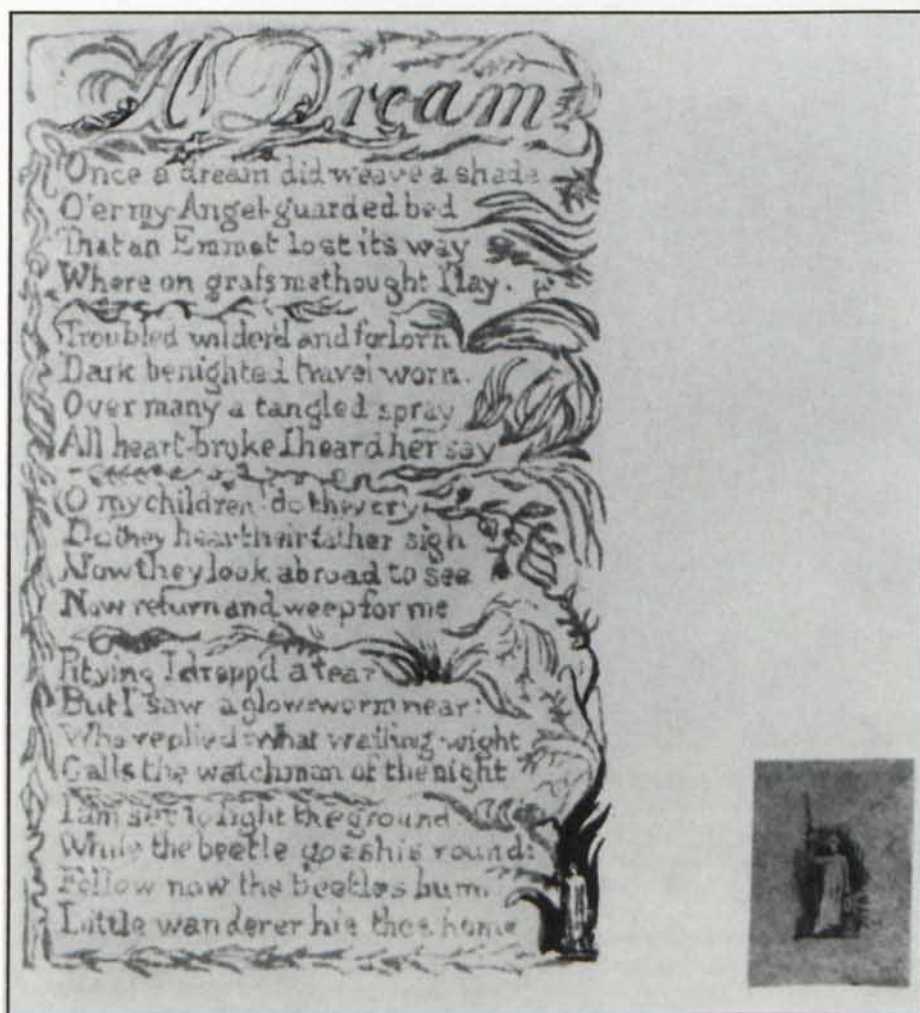 A Dream
Once a dream did weave a shade
O'er my Angel-guarded bed
That an Emmet lost its way
Where on grass methought I lay.
Troubled wilderd and forlorn
Dark benighted travel-worn.
Over many a tangled spray
All heart-broke I heard her say
O my children do they cry
Do they hear their father sigh
Now they look abroad to see
Now return and weep for me
Pitying I dropp'd a tear
But I saw a glow-worm near:
Who replied what wailing wight
Calls the watchman of the night
I am set to light the ground
While the beetle goes his round:
Follow now the beetles hum.
Little wanderer hie thee home